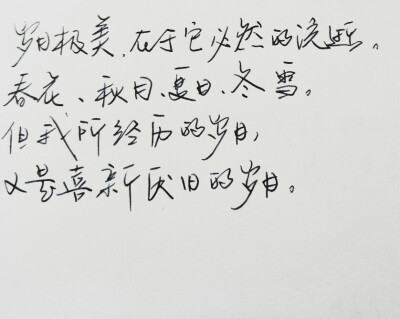 岁月极美，在于它必然的流逝。
春花、秋月、夏日、冬雪。
但我所经历的岁月，
又是喜新厌旧的岁月。